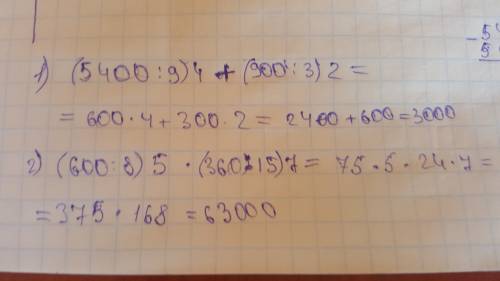 1) (5400:9)4 + (900:3)2 =
= 600·4 + 300·2 = 2400 + 600 = 3000
2) (600:8) 5 · (360:15)7 = 75·5·24·7 =
= 375 · 168 = 63000